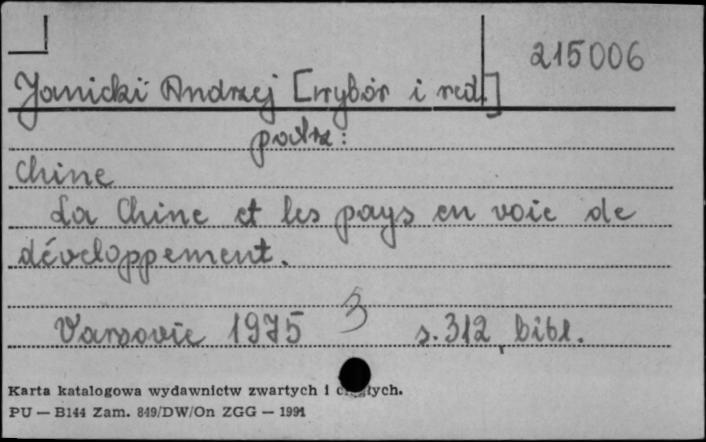 215006
Janicki Andrzej [wybór i red.]
patrz:
Chine
La Chine et les pays en voie de
développement.
Varsovie 1975 3 s. 312, bibl.
Karta katalogowa wydawnictw zwartych i
PU — B144 Zam. 849/DW/On ZGG — 1991